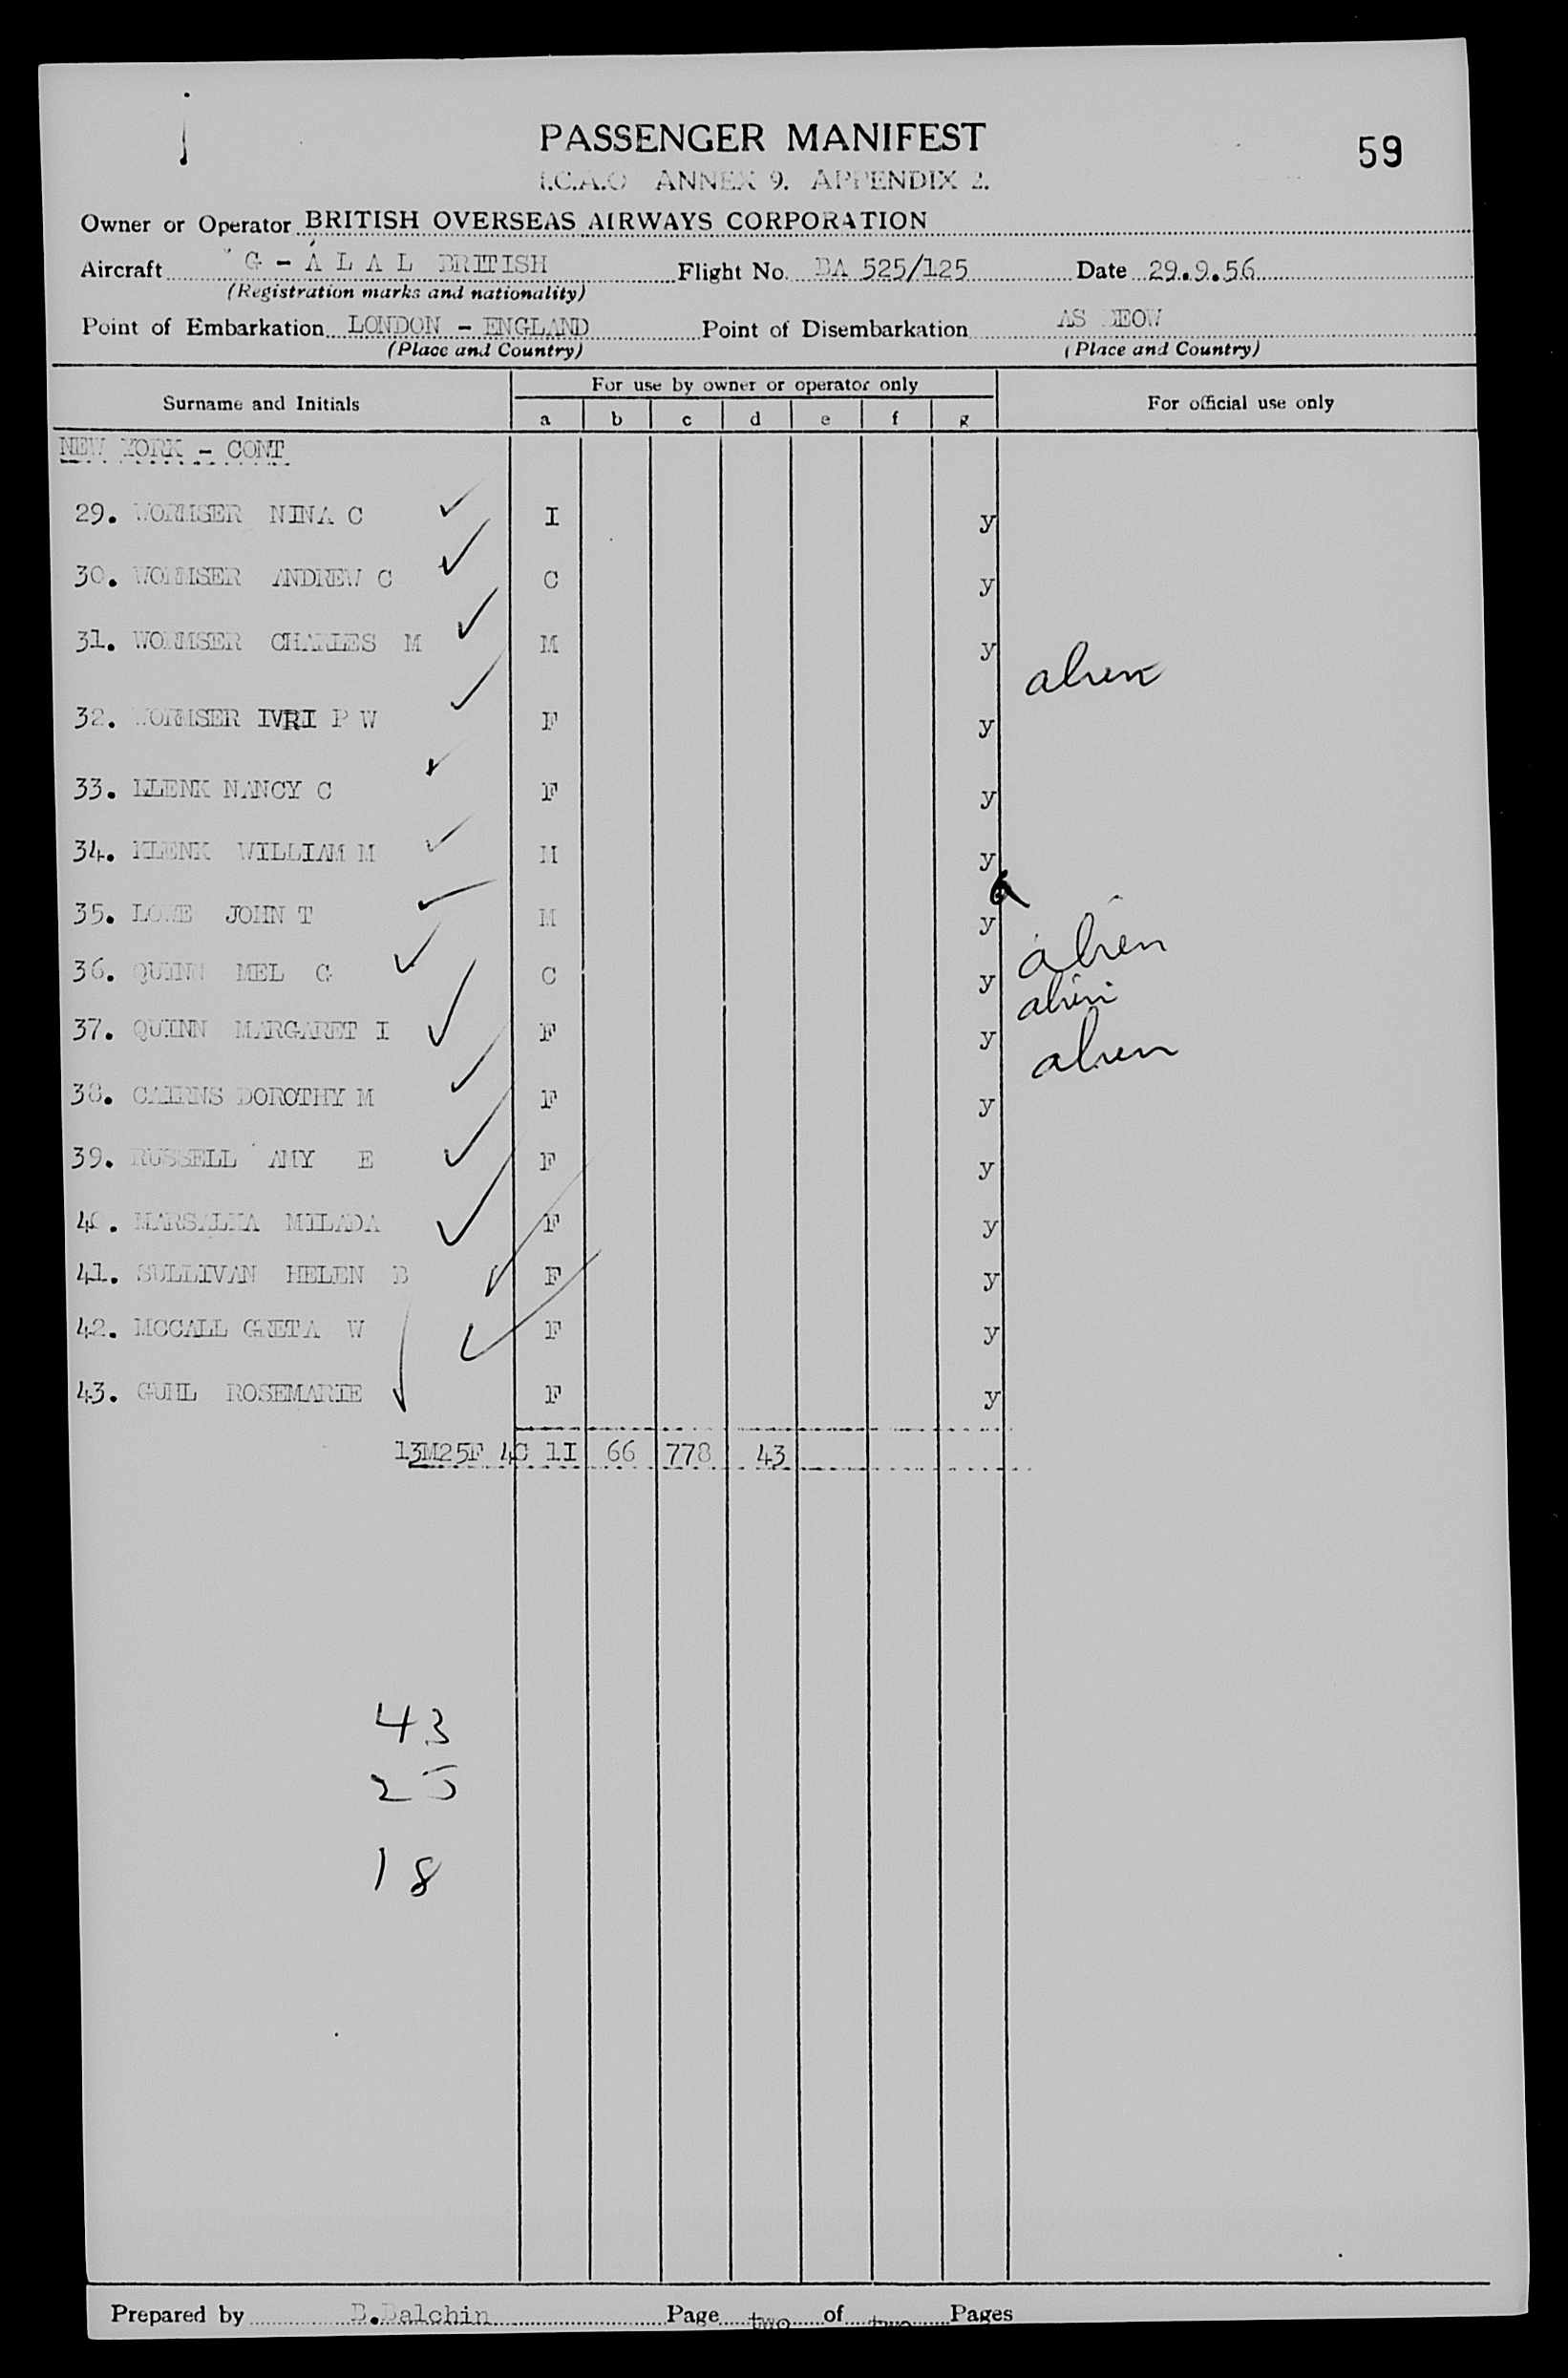 PASSENGER MANIFEST
59
I.C.A.O ANNEX 9. APPENDIX 2.
Owner or Operator BRITISH OVERSEAS AIRWAYS CORPORATION
Aircraft G - A L A L BRITISH Flight No. BA 525/125 Date 29.9.56
(Registration marks and nationality)
Point of Embarkation LONDON - ENGLAND Point of Disembarkation AS BEOW
(Place and Country) (Place and Country)
Surname and Initials For use by owner or operator only For official use only
a b c d e f g
NEW YORK - CONT
29. WORMSER NINA C I y
30. WORMSER ANDREW C C y
31. WORMSER CHARLES M M y
alien
32. WORMSER IVRI P W F y
33. LLENK NANCY C F y
34. KLENK WILLIAM M M y
35. LOWE JOHN T M y
alien
36. QUINN MEL G C y
alien
37. QUINN MARGARET I F y
alien
38. CAIRNS DOROTHY M F y
39. RUSSELL AMY E F y
40. MARSALKA MILADA F y
41. SULLIVAN HELEN B F y
42. MCCALL GRETA W F y
43. GUHL ROSEMARIE F y
13M25F 4C 1I 66 778 43
43
25
18
Prepared by D.Dalchin Page two of two Pages